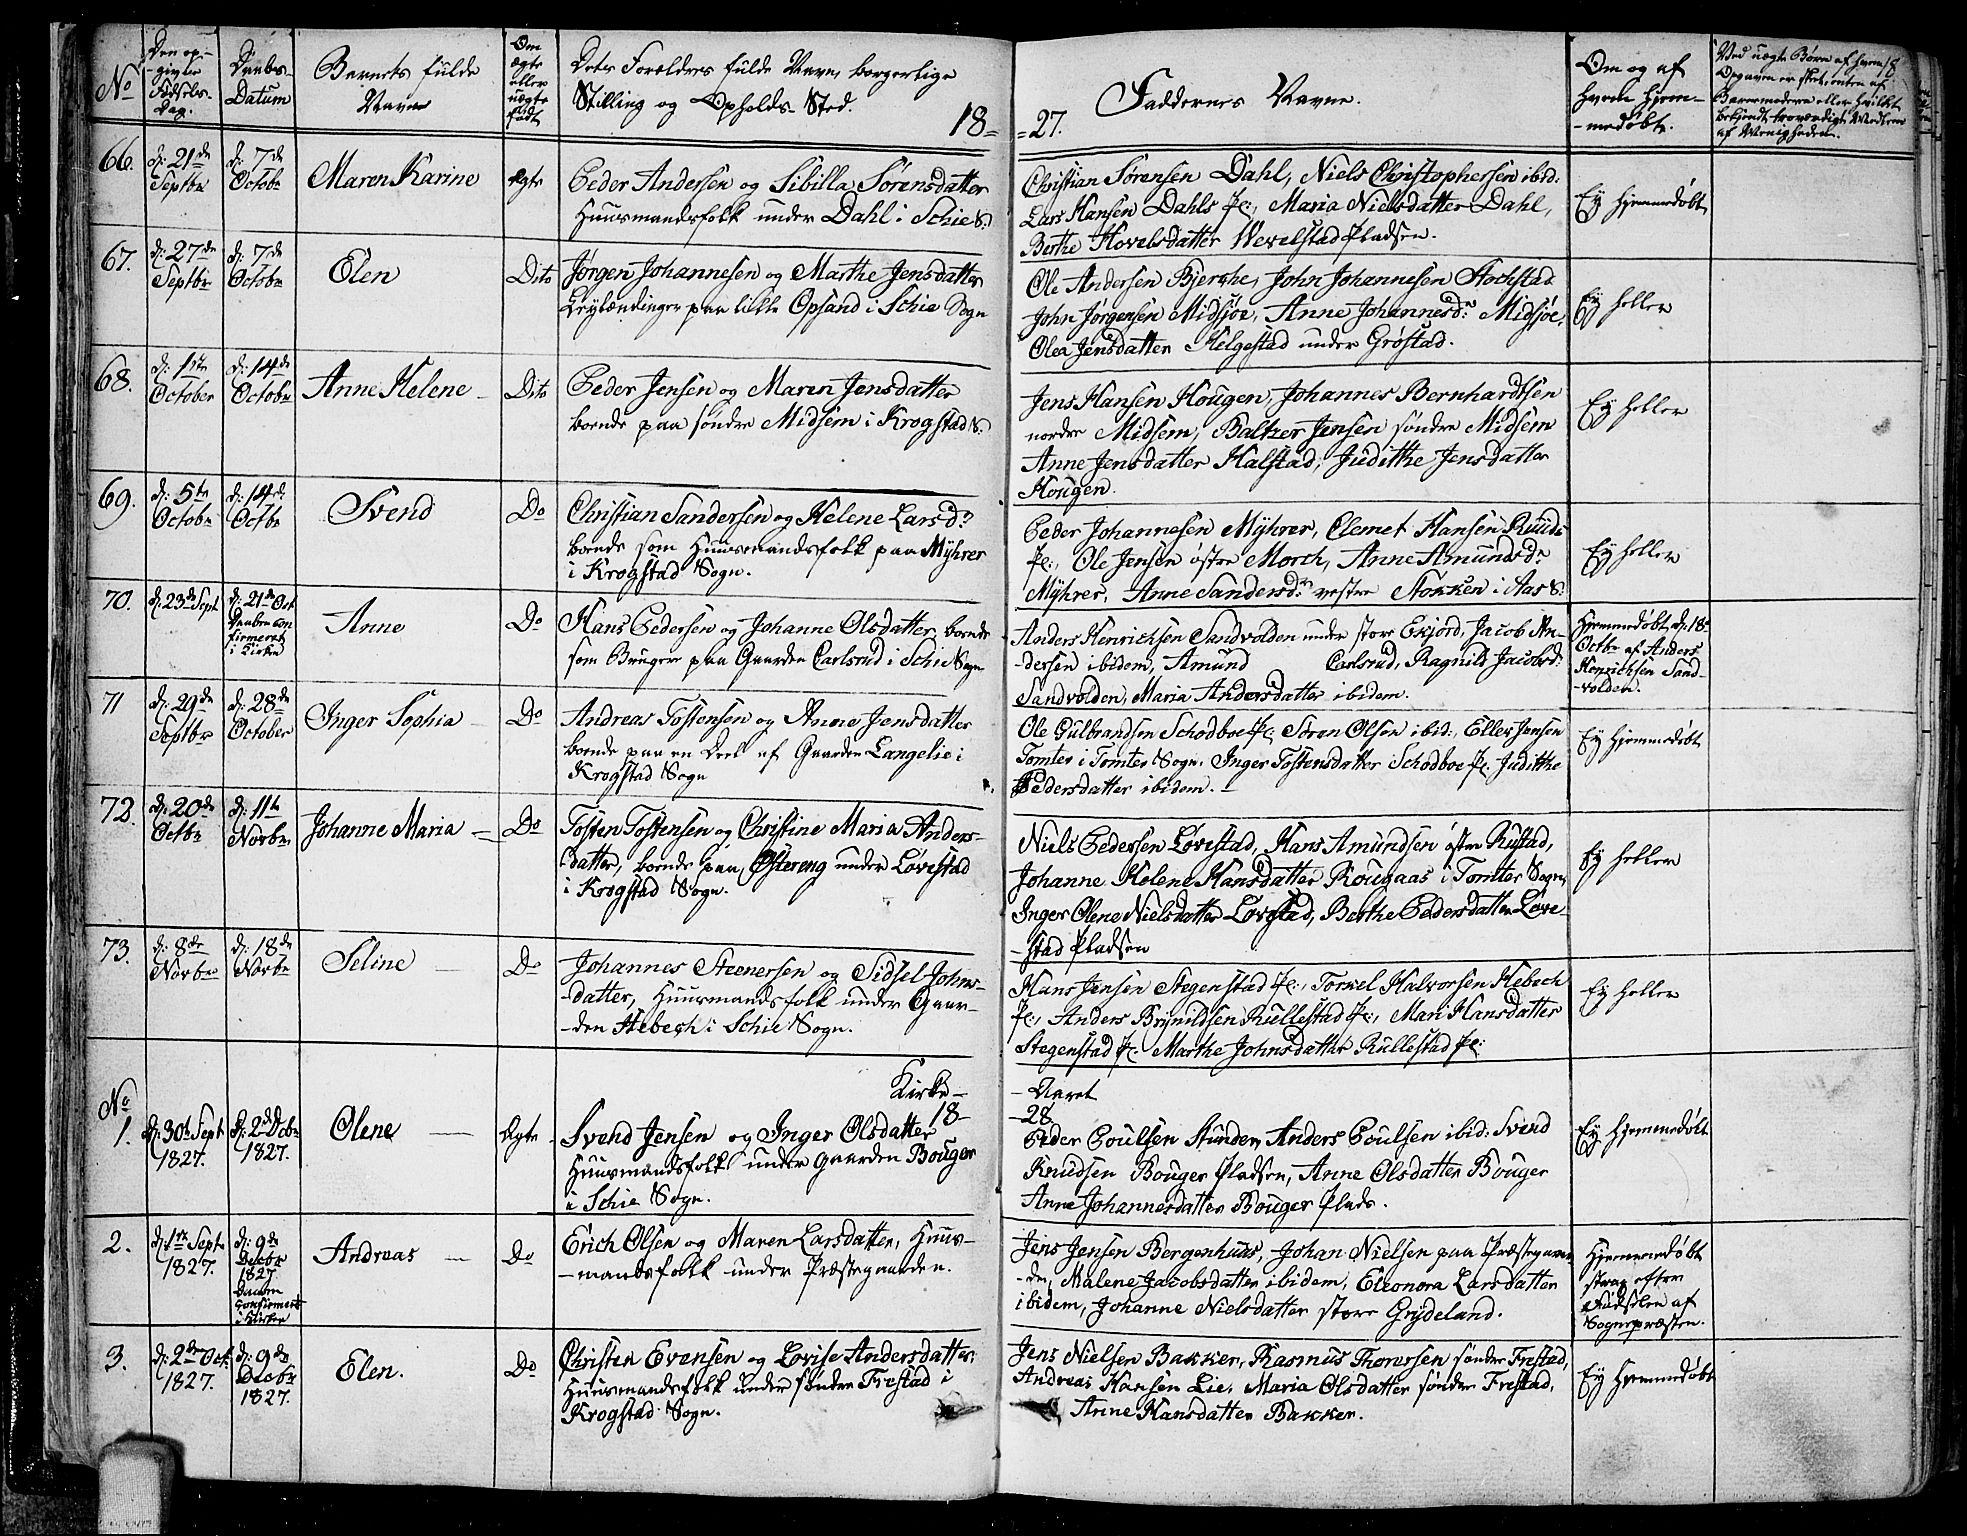 No
Den op-
-givne
Fødsels-
Dag.
Daabs-
Datum
Barnets fulde
Navn
Om
ægte
eller
uægte
født
Dets Forældres fulde Navn, borgerlige
Stilling og Opholds-Sted.
18-
-27.
Faddernes Navne.
Om og af
hvem hjem-
-medøbt.
Ved uægte Børn af hvem
Opgaven er skeet, enten af
Barnemoderen eller hvilket
bekjendt troværdigt Medlem
af Menigheden.
18
66.
d: 21de
Septbr
d: 7de
Octobr
Maren Karine
Ægte
Peder Andersen og Sibilla Sørensdatter
Huusmandsfolk under Dahl i Schie S:
Christian Sørensen Dahl, Niels Christophersen ibid:
Lars Hansen Dahls Pl:, Maria Nielsdatter Dahl,
Berthe Hovelsdatter Wevelstad Pladsen.
Ey hjemmedøbt
67.
d: 27de
Septbr
d: 7de
October
Elen
Dito
Jørgen Johannesen og Marthe Jensdatter
Leylændinger paa lille Opsand i Schie Sogn
Ole Andersen Bjerche, John Johannesen Stochstad
John Jørgensen Midsjøe, Anne Johannesdr Midsjøe,
Olea Jensdatter Helgestad under Grøstad.
Ey heller
68.
d: 1ste
October
d: 14de
Octobr
Anne Helene
Dito
Peder Jensen og Maren Jensdatter
boende paa søndre Midsem i Krogstad S:
Jens Hansen Hougen, Johannes Bernhardtsen
nordre Midsem, Baltzer Jensen søndre Midsem
Anne Jensdatter Halstad, Judithe Jensdatter
Hougen.
Ey heller
69.
d: 5te
Octobr
d: 14de
Octbr
Svend
Do
Christian Sandersen og Helene Larsdr
boende som Huusmandsfolk paa Mÿhrer
i Krogstad Sogn.
Peder Johannesen Mÿhrer, Clemet Hansen Ruuds
Pl:, Ole Jensen østre Morch, Anne Amundsdr
Mÿhrer, Anne Sandersdr vestre Stokken i Aas S:
Ey heller
70.
d: 23de Sept
d: 21de Oct
Daaben con
firmeret
i Kirken
Anne
Do
Hans Pedersen og Johanne Olsdatter, boende
som Brugere paa Gaarden Carlsrud i Schie Sogn
Anders Henrichsen Sandvolden under store Ekjord, Jacob An-
-dersen ibidem, Amund Carlsrud, Ragnild Jacobsd:
Sandvolden, Maria Andersdatter ibidem.
Hjemmedøbt d: 18de
Octbr af Anders
Henrichsen Sand-
-volden.
71
d: 29de
Septbr
d: 28de
October
Inger Sophia
Do
Andreas Tostensen og Anne Jensdatter
boende paa en Deel af Gaarden Langelie i
Krogstad Sogn
Ole Gulbrandsen Schodboe Pl: Søren Olsen ibid:, Eller Jensen
Tomter i Tomter Sogn, Inger Tostensdatter Schodboe Pl: Judithe
Pedersdatter ibidem. -
Ey hjemmedøbt
72.
d: 20de
Octbr
d: 11te
Novbr
Johanne Maria
Do
Tosten Tostensen og Christine Maria Anders-
-datter, boende paa Østereng under Løvestad
i Krogstad Sogn.
Niels Pedersen Løvestad, Hans Amundsen østre Rustad,
Johanne Helene Hansdatter Kougaas i Tomter Sogn,
Inger Olene Nielsdatter Løvestad, Berthe Pedersdatter Løve-
-stad Pladsen
Ey heller
73.
d: 8de
Novbr
d: 18de
Novbr
Seline
Do
Johannes Steenersen og Sidsel Johns-
-datter, Huusmandsfolk under Gaar-
-den Hebech i Schie Sogn.
Hans Jensen Stegenstad Pl:, Torkel Halvorsen Hebech
Pl:, Anders Brÿnildsen Rullestad Pl:, Mari Hansdatter
Stegenstad Pl: Marthe Johnsdatter Rullestad Pl:
Ey heller
Kirke-
-Aaret
18-
-28
No
1.
d: 30te Sept
1827.
d: 2de Dcbr
1827.
Olene
Ægte
Svend Jensen og Inger Olsdatter
Huusmandsfolk under Gaarden Bouger
i Schie Sogn.
Peder Poulsen Stunder, Anders Poulsen ibid: Svend
Knudsen Bouger Pladsen, Anne Olsdatter Bouger
Anne Johannesdatter Bouger Plads.
Ey hjemmedøbt
2.
d: 1ste Sept
1827.
d: 9de
Decbr
1827
Daaben
confirmeret
i Kirken
Andreas
Do
Erich Olsen og Maren Larsdatter, Huus-
-mandsfolk under Præstegaarden.
Jens Jensen Bergenhuus, Johan Nielsen paa Præstegaar-
-den, Malene Jacobsdatter ibidem, Eleonora Larsdatter
ibidem, Johanne Nielsdatter store Grÿdeland.
Hjemmedøbt
strax efter
Fødselen af
Sognepræsten.
3.
d: 2de Oct:
1827.
d: 9de
Decbr
1827.
Elen.
Do
Christen Evensen og Lovise Andersdatter,
Huusmandsfolk under søndre Frestad i
Krogstad Sogn.
Jens Nielsen Bakker, Rasmus Thoresen søndre Frestad,
Andreas Hansen Lie, Maria Olsdatter søndre Frestad,
Anne Hansdatter Bakker.
Ey hjemmedøbt